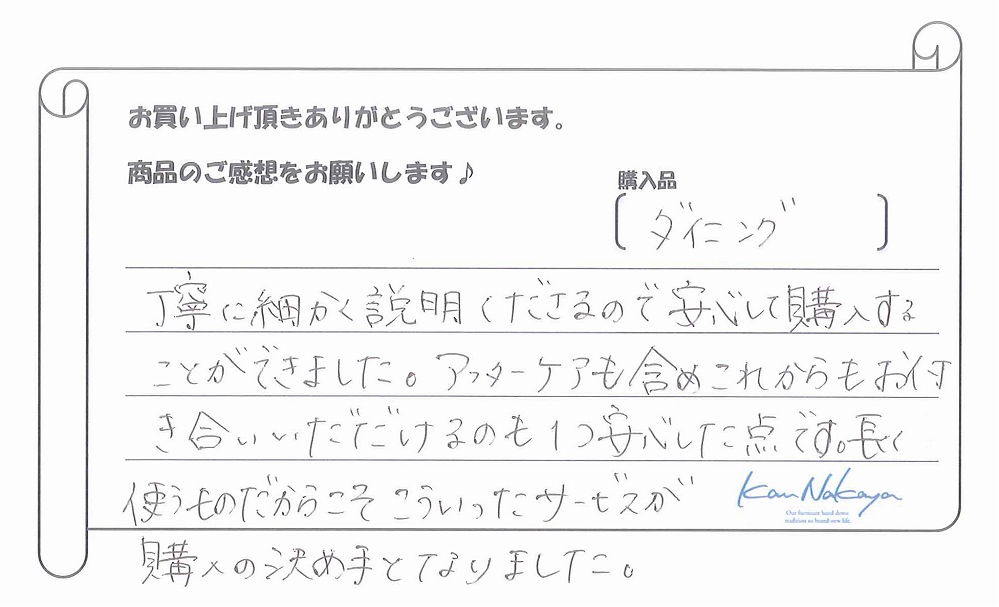 お買い上げ頂きありがとうございます。
商品のご感想をお願いします♪
購入品
ダイニング
丁寧に細かく説明くださるので安心して購入する
ことができました。アフターケアも含めこれからもお付
き合いいただだけるのも1つ安心した点です。長く
使うものだからこそこういったサービスが
購入の決め手となりました。
Kan Nakaya
Our furniture hand down
tradition to brand-new life.